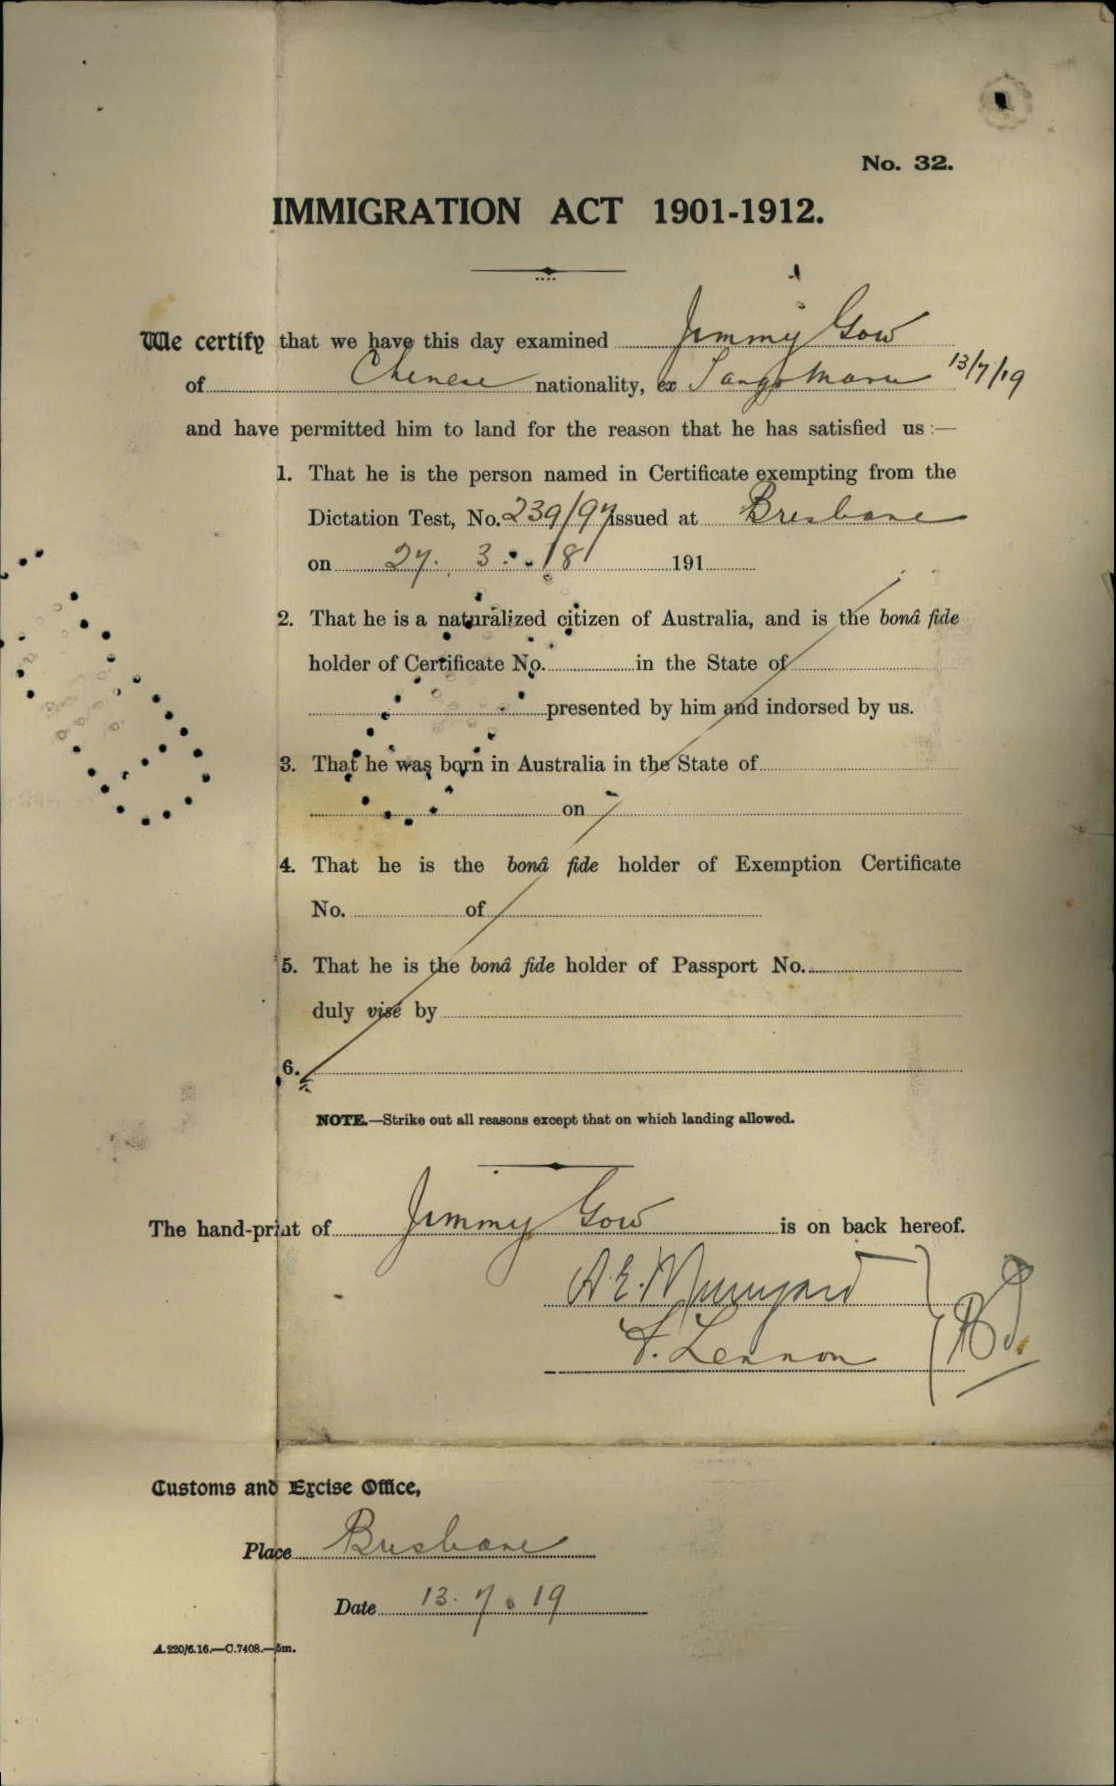 No. 32.
IMMIGRATION ACT 1901-1912.
We certify that we have this day examined Jimmy Gow
of Chinese nationality, ex Tango Maru 13/7/19
and have permitted him to land for the reason that he has satisfied us:—
1. That he is the person named in Certificate exempting from the
Dictation Test, No. 239/97 issued at Brisbane
on 27. 3. 18 191
2. That he is a naturalized citizen of Australia, and is the bonâ fide
holder of Certificate No. in the State of
presented by him and indorsed by us.
3. That he was born in Australia in the State of
on
4. That he is the bonâ fide holder of Exemption Certificate
No. of
5. That he is the bonâ fide holder of Passport No.
duly visé by
6.
NOTE.—Strike out all reasons except that on which landing allowed.
The hand-print of Jimmy Gow is on back hereof.
A. E.
Lennon
Customs and Excise Office,
Place Brisbane
Date 13. 7. 19
A.220/6.16.—C.7408.—5m.